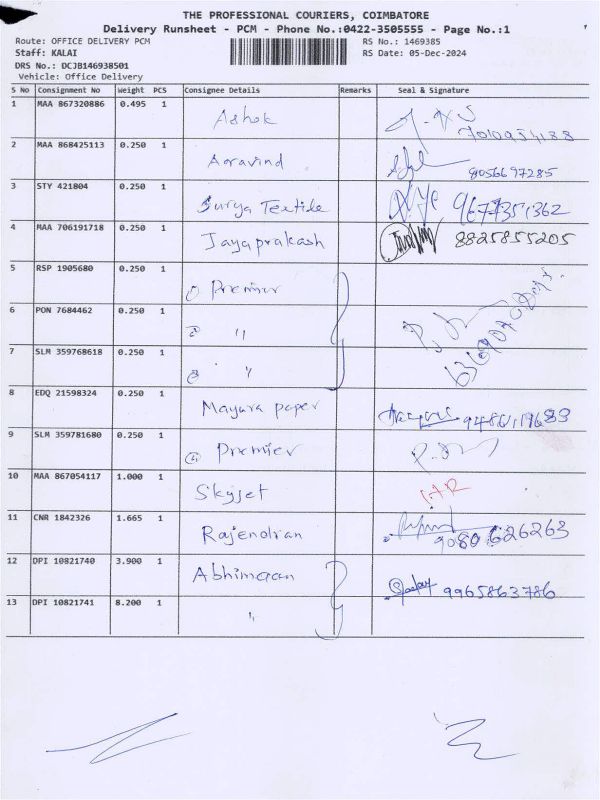 THE PROFESSIONAL COURIERS, COIMBATORE
Delivery Runsheet - PCM - Phone No.:0422-3505555 - Page No.:1
Route: OFFICE DELIVERY PCM RS No.: 1469385
Staff: KALAI RS Date: 05-Dec-2024
DRS No.: DCJB146938501
Vehicle: Office Delivery
S No Consignment No Weight PCS Consignee Details Remarks Seal & Signature
1 MAA 867320886 0.495 1 Ashok
2 MAA 868425113 0.250 1 Aravind 9056697285
3 STY 421804 0.250 1 Surya Textile
4 MAA 706191718 0.250 1 Jayaprakash 8825855205
5 RSP 1905680 0.250 1 ① Premier
6 PON 7684462 0.250 1 ② "
7 SLM 359768618 0.250 1 ③ "
8 EDQ 21598324 0.250 1 Mayura paper
9 SLM 359781680 0.250 1 ④ Premier
10 MAA 867054117 1.000 1 Skyjet
11 CNR 1842326 1.665 1 Rajendiran 9080626263
12 DPI 10821740 3.900 1 Abhimaan 9965863786
13 DPI 10821741 8.200 1 "